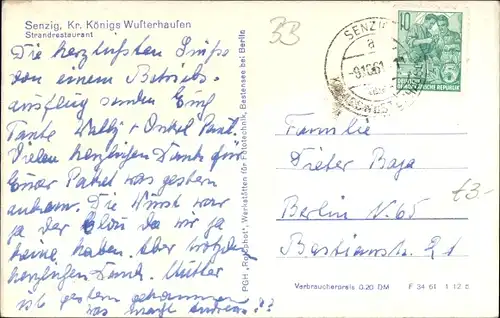 Senzig, Kr. Königs Wusterhausen
Strandrestaurant
33
Die herzlichsten Grüße
von einem Betriebs-
ausflug senden Euch
Tante Wally + Onkel Paul.
Vielen herzlichen Dank für
Euer Paket was gestern
ankam. Die Wurst war
ja der da wir ja
keine haben. Aber trotzdem
herzlichen Dank. Mutter
ist gestern gekommen
was macht Andreas??
PGH „Rotophot", Werkstätten für Fototechnik, Bestensee bei Berlin
SENZIG
a
61
10
DEUTSCHE DEMOKRATISCHE REPUBLIK
Familie
Dieter Baja
Berlin N. 65
Bastianstr. 21
£3-
Verbraucherpreis 0.20 DM F 34 61 1 12 6